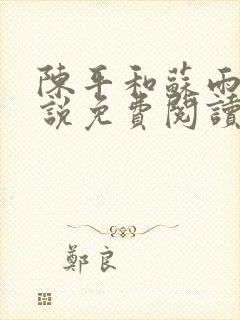 陳平和蘇雨
說免費閱讀
鄭良